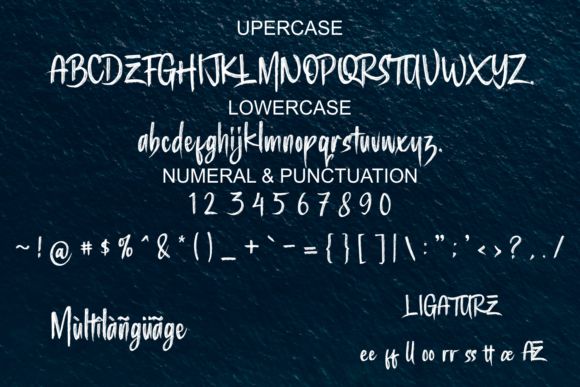 UPERCASE
ABCDEFGHIJKLMNOPQRSTUVWXYZ.
LOWERCASE
abcdefghijklmnopqrstuvwxyz.
NUMERAL & PUNCTUATION
1 2 3 4 5 6 7 8 9 0
~ ! @ # $ % ^ & * ( ) _ + ` - = { } [ ] | \ : " ; ' < > ? , . /
LIGATURE
Mùltîlàñgüãge
ee ff ll oo rr ss tt œ Æ